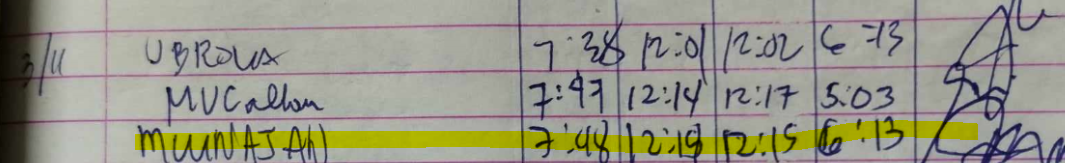 3/11 UBROUX 7:38 12:01 12:02 6:13
MVCallon 7:47 12:14 12:17 5:03
MUUNAJAN 7:48 12:15 12:15 6:13